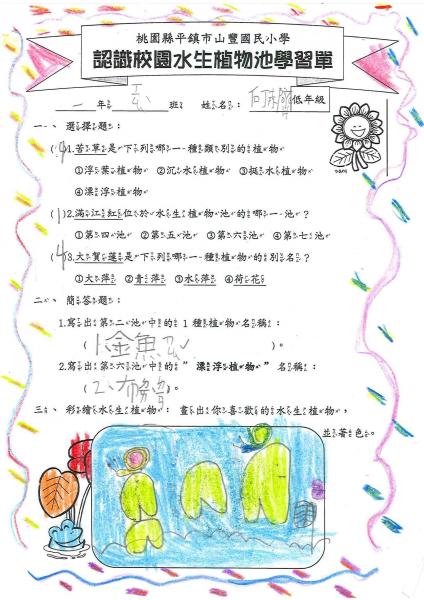 桃園縣平鎮市山豐國民小學
認識校園水生植物池學習單
一年 班 姓名： 低年級
一、選擇題：
(4)1.苦草是下列哪一種類別的植物
①浮葉植物 ②沉水植物 ③挺水植物
④漂浮植物
(1)2.滿江紅位於水生植物池的哪一池？
①第四池 ②第五池 ③第六池 ④第七池
(4)3.大賀蓮是下列哪一種植物的別名？
①大萍 ②青萍 ③水萍 ④荷花
二、簡答題：
1.寫出第二池中的1種植物名稱：
(1.金魚ㄠ )。
2.寫出第六池中的"漂浮植物"名稱：
(2.布ㄉㄞ )。
三、彩繪水生植物：畫出你喜歡的水生植物，
並著色。